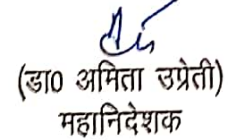 (डा0 अमिता उप्रेती)
महानिदेशक